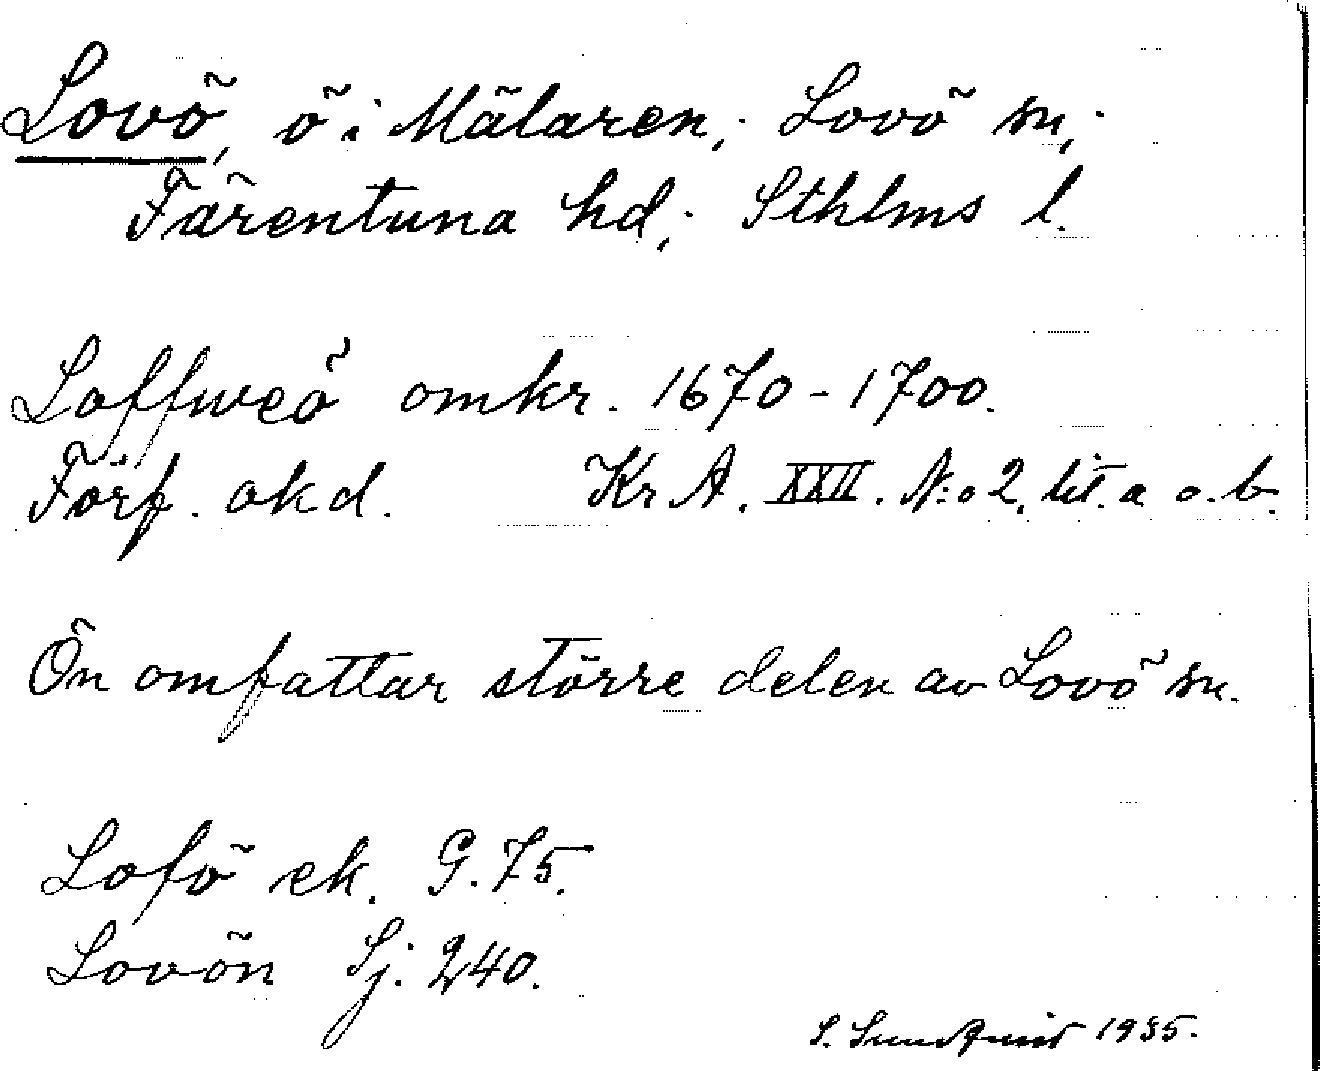 Lovö, ö i Mälaren; Lovö sn;
Färentuna hd; Sthlms l.
Loffweö omkr. 1670-1700.
Förf. okd. KrA. XXII. N:o 2, lit. a o. b.
Ön omfattar större delen av Lovö sn.
Lofö ek. G. 75.
Lovön Sj. 240.
S. Sundqvist 1935.